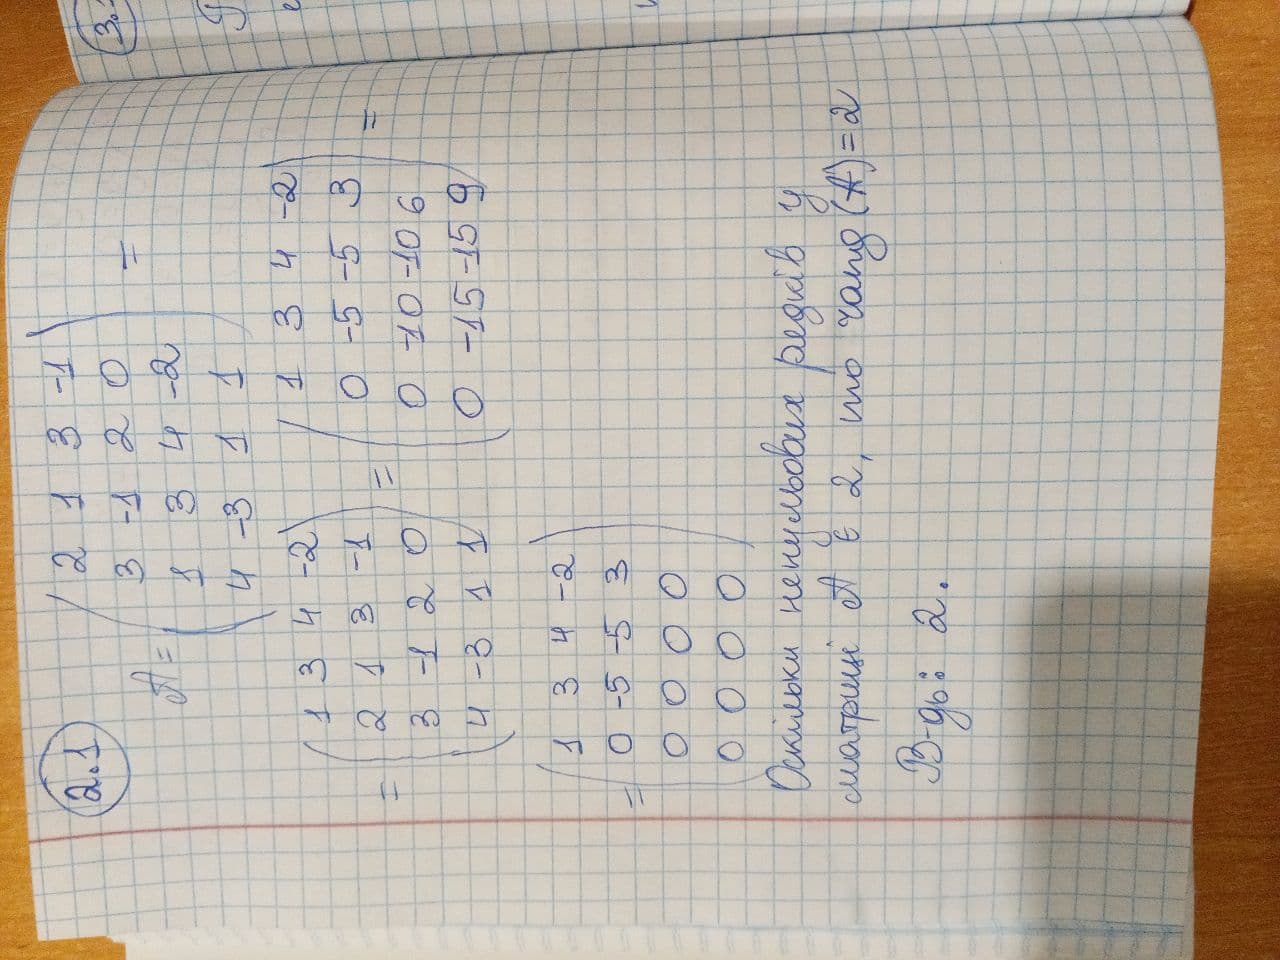 2.1
2 1 3 -1
3 -1 2 0
A = 1 3 4 -2 =
4 -3 1 1
1 3 4 -2
2 1 3 -1
= 3 -1 2 0 =
4 -3 1 1
1 3 4 -2
0 -5 -5 3
0 -10 -10 6 =
0 -15 -15 9
1 3 4 -2
0 -5 -5 3
= 0 0 0 0
0 0 0 0
Оскільки ненульових рядків у
матриці A є 2, то rang (A) = 2
В-дь: 2.